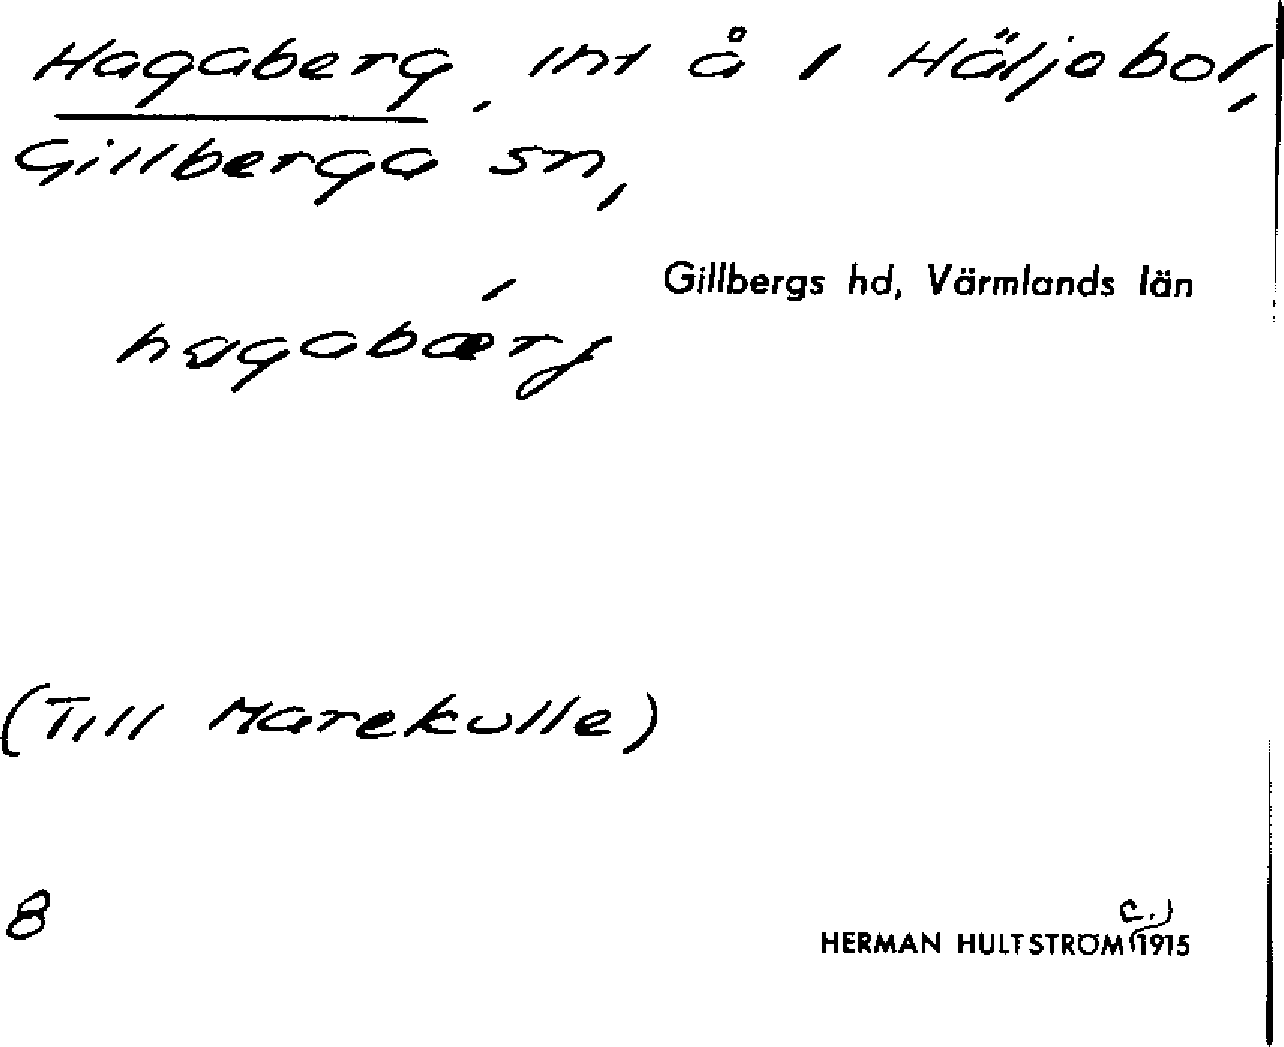 Hagaberg, int å 1 Häljebol,
Gillberga sn,
Gillbergs hd, Värmlands län
hagabærj
(Till Marekulle)
8
c.)
HERMAN HULTSTRÖM 1915